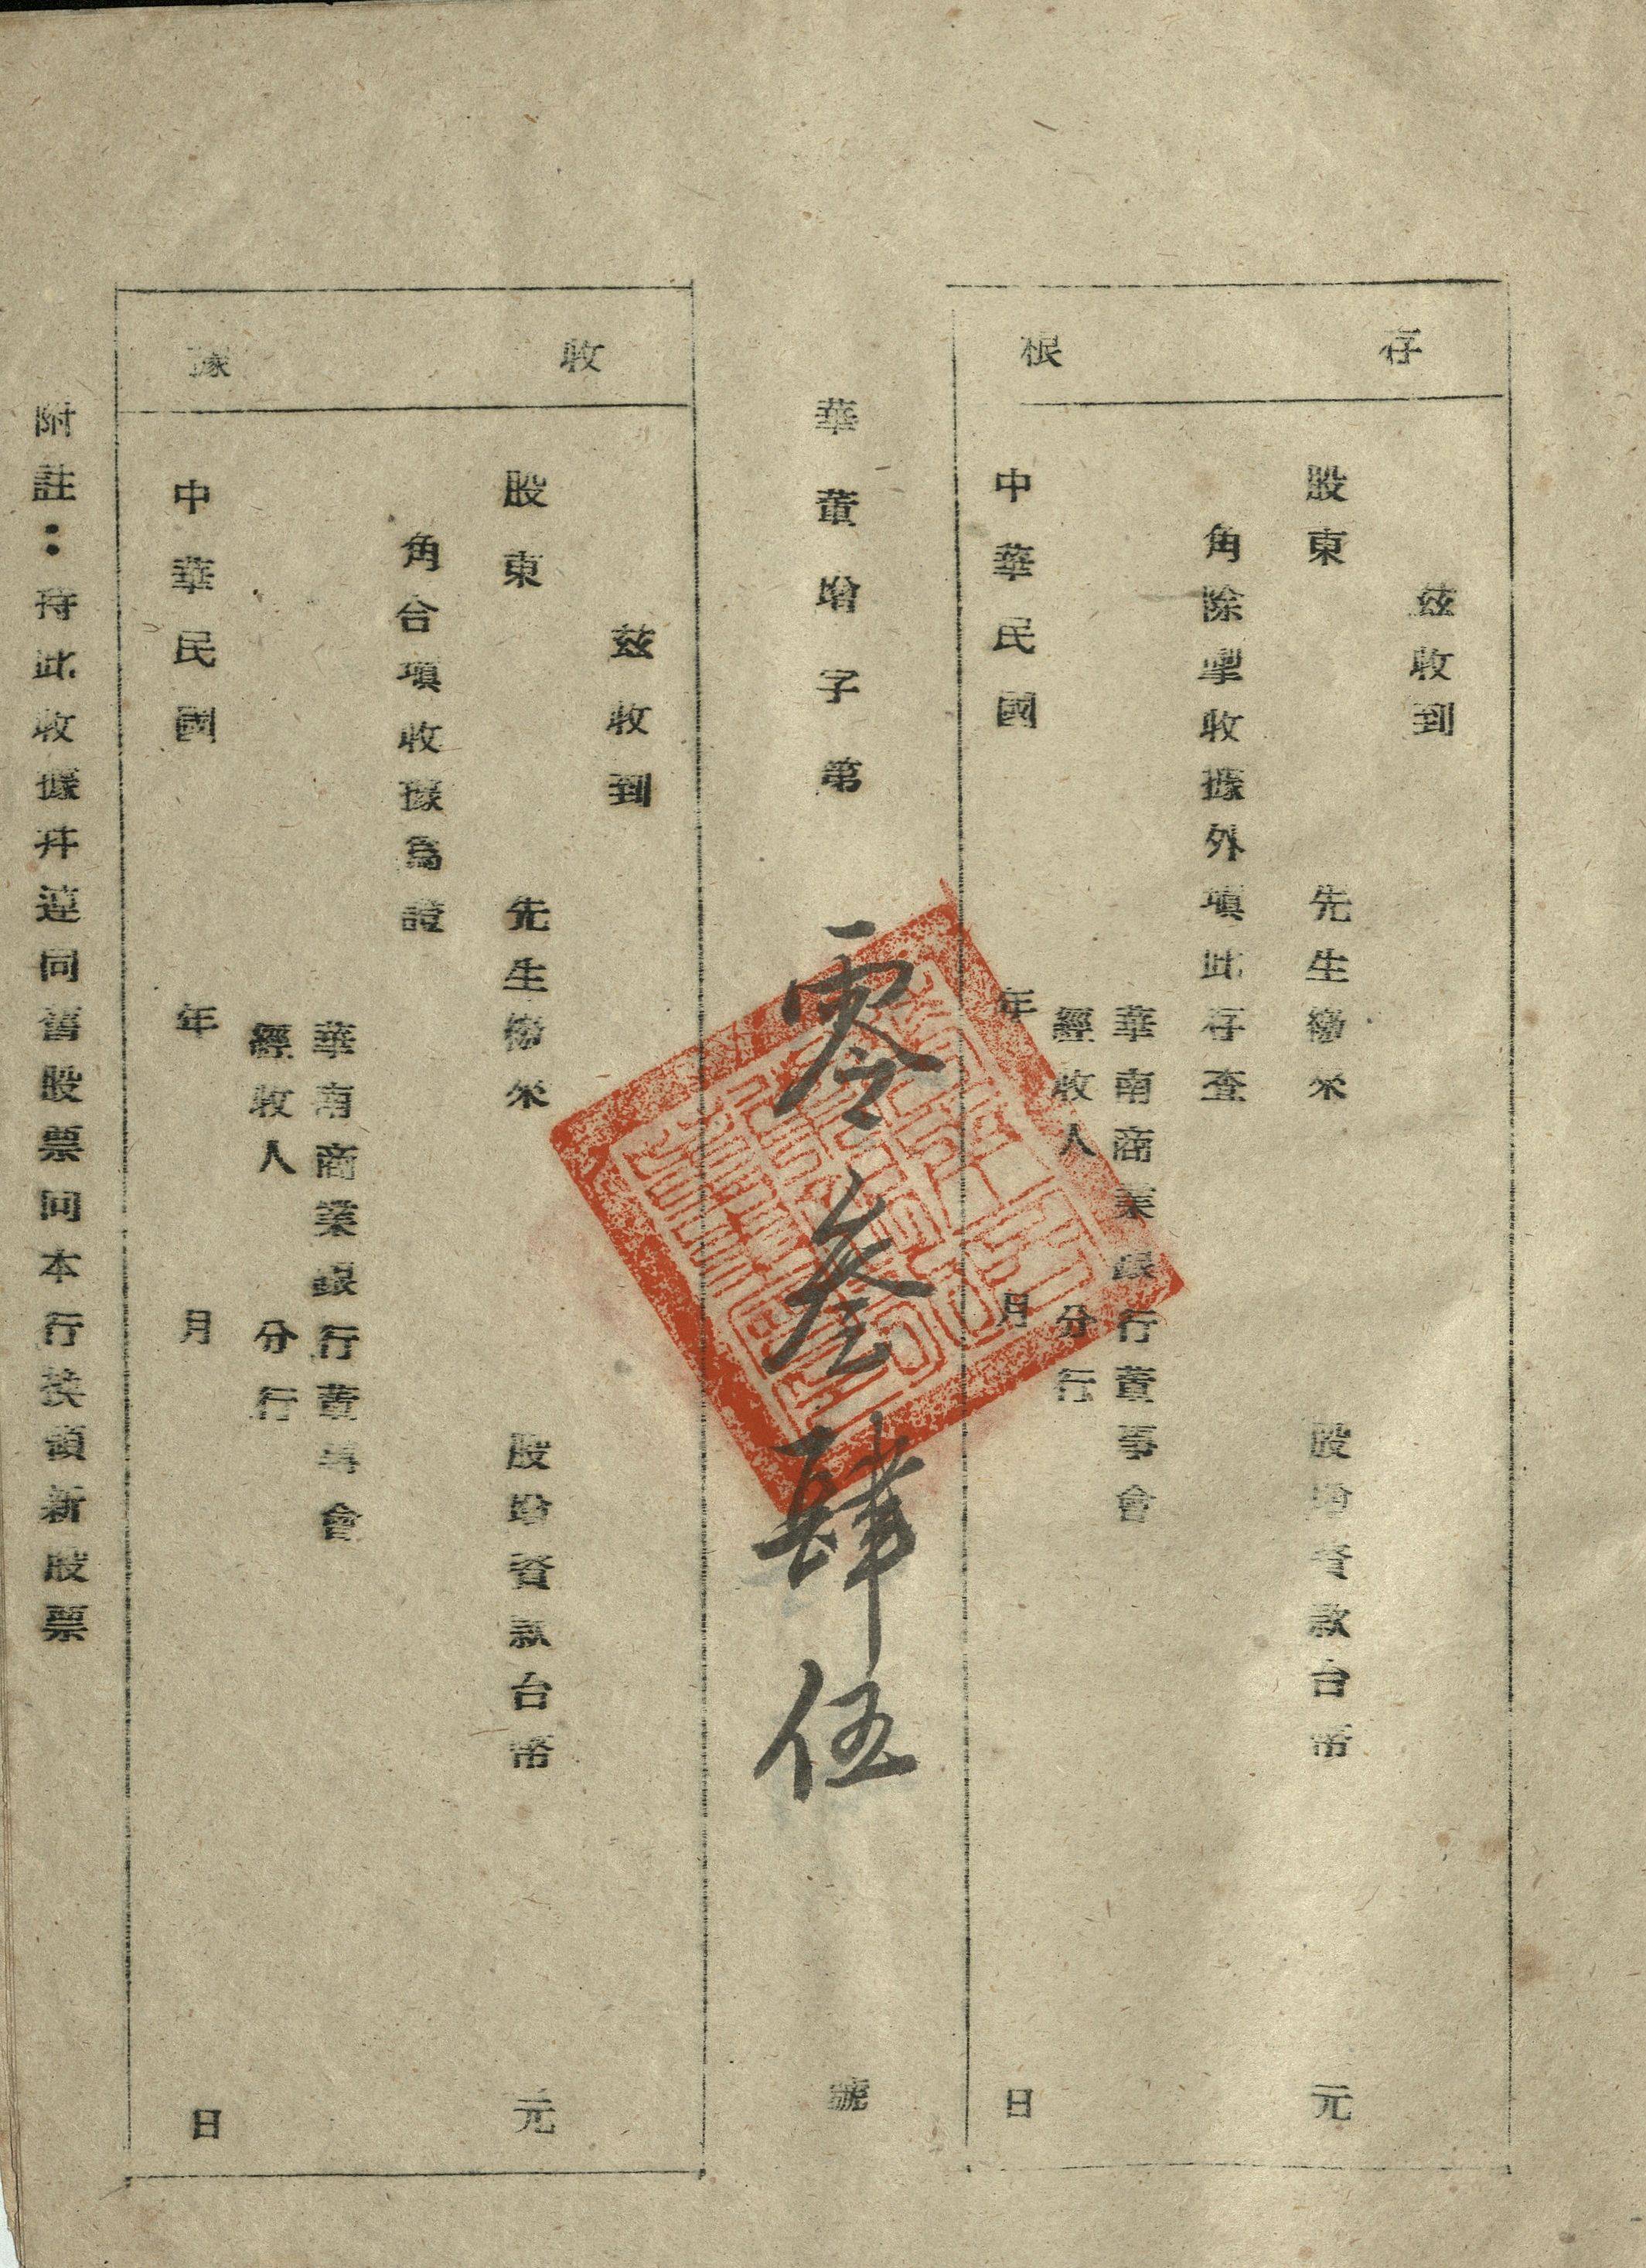 存根
茲收到
股東 先生繳來 股增資款台幣 元
角除掣收據外項此存查
華南商業銀行董事會
經收人 分行
中華民國 年 月 日
華董增字第 零叁肆伍 號
收據
茲收到
股東 先生繳來 股增資款台幣 元
角合項收據為證
華南商業銀行董事會
經收人 分行
中華民國 年 月 日
附註：持此收據并連同舊股票向本行換領新股票